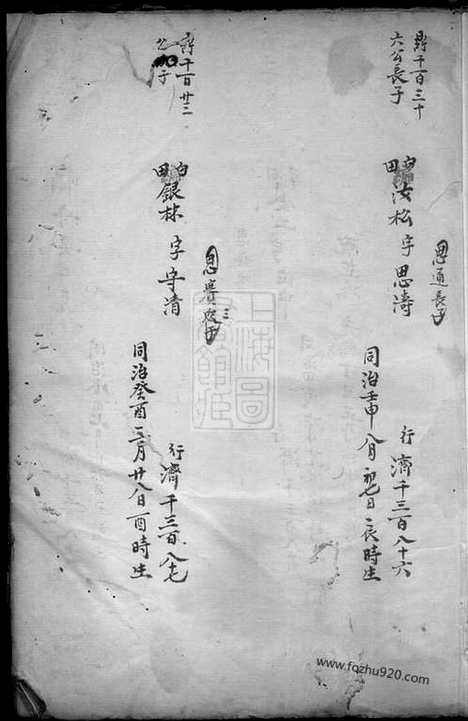 鼎千百三十
六公長子
白田
汝松 字 思濤
恩通長子
行 濟千三百八十六
同治壬申八月初七日辰時生
千百廿三
子
白田
銀林 字 守清
三
行 濟千三百八七
同治癸酉二月廿八日酉時生
上海圖書館藏
www.fqzhu920.com